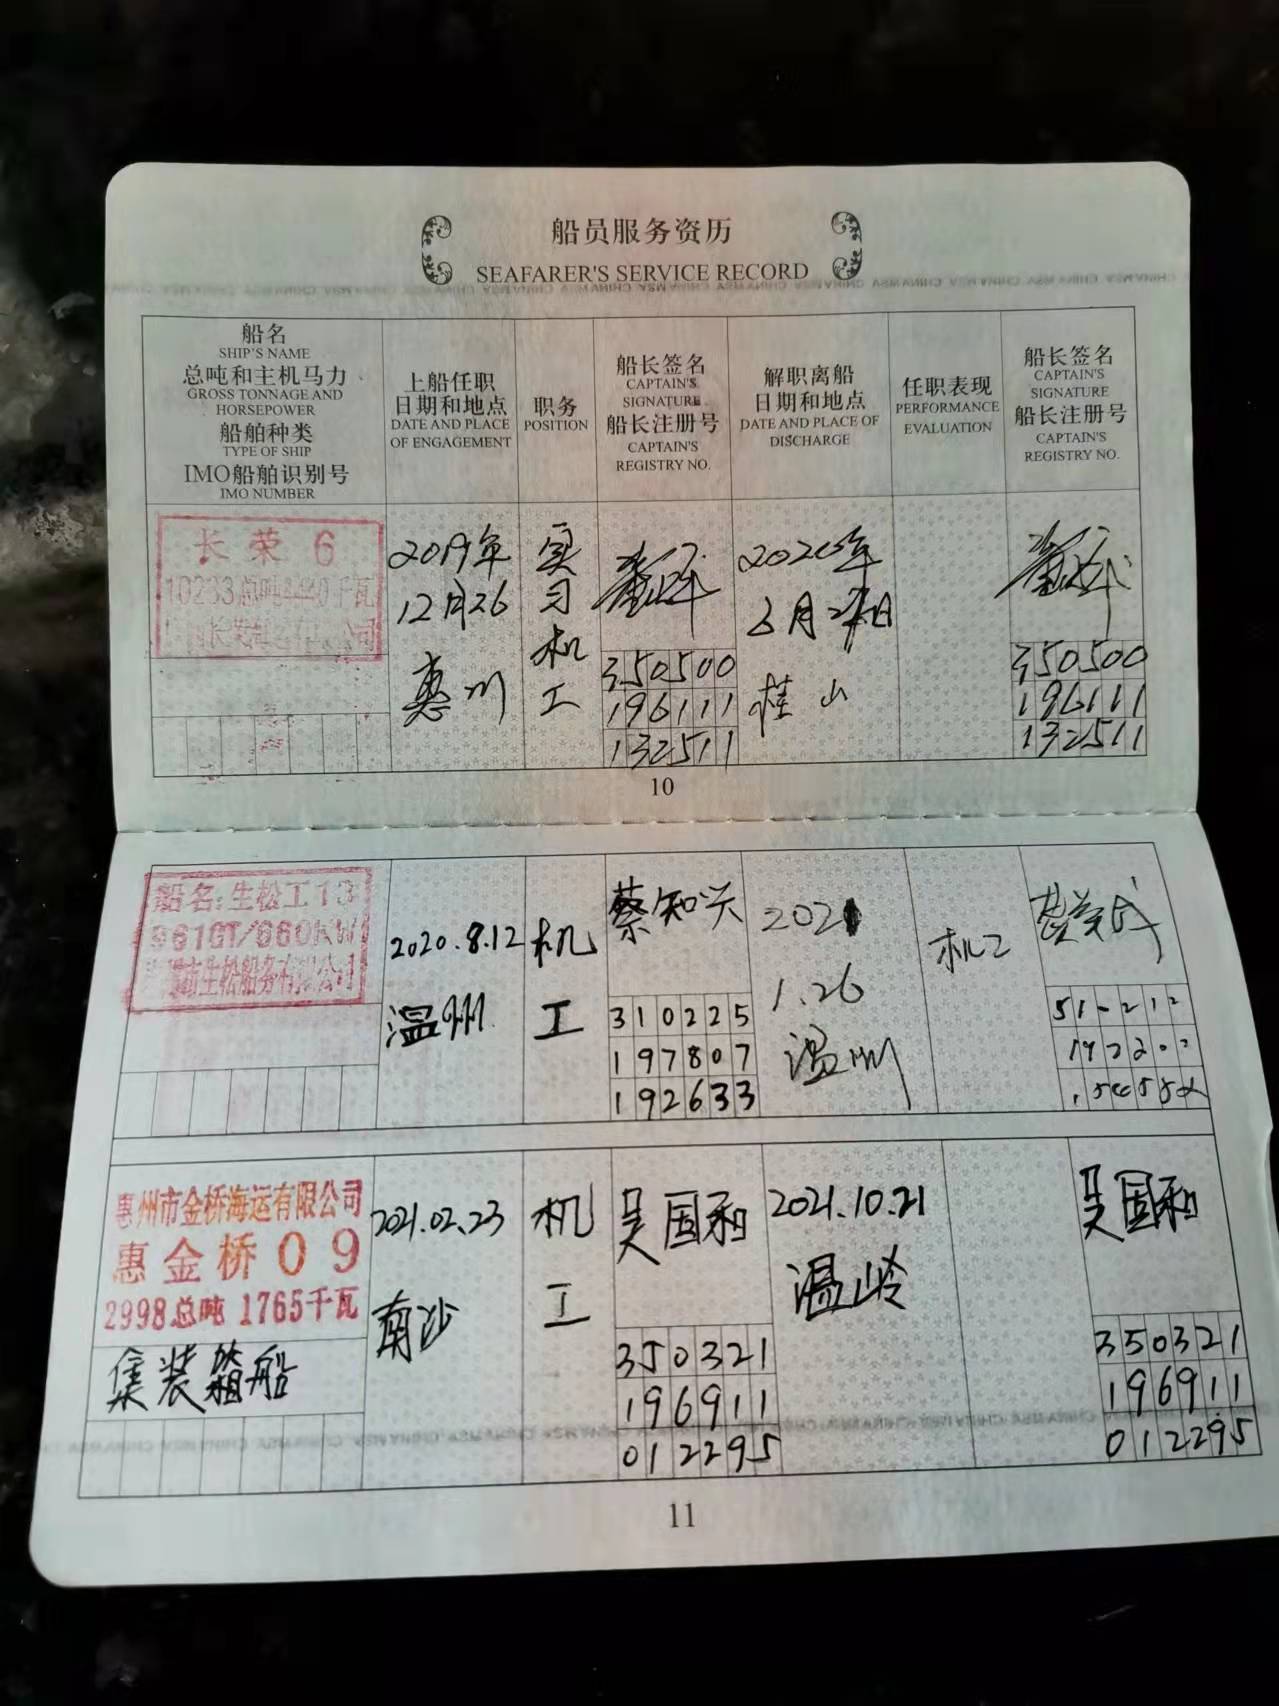 船员服务资历
SEAFARER'S SERVICE RECORD
船名
SHIP'S NAME
总吨和主机马力
GROSS TONNAGE AND
HORSEPOWER
船舶种类
TYPE OF SHIP
IMO船舶识别号
IMO NUMBER
上船任职
日期和地点
DATE AND PLACE
OF ENGAGEMENT
职务
POSITION
船长签名
CAPTAIN'S
SIGNATURE
船长注册号
CAPTAIN'S
REGISTRY NO.
解职离船
日期和地点
DATE AND PLACE OF
DISCHARGE
任职表现
PERFORMANCE
EVALUATION
船长签名
CAPTAIN'S
SIGNATURE
船长注册号
CAPTAIN'S
REGISTRY NO.
长荣6
10233总吨4440千瓦
2019年
12月26
惠州
实
习
机
工
350500
196111
132511
2020年
6月
桂山
350500
196111
132511
10
船名:生松工13
961GT/660KW
市生松船务有限公司
2020.8.12
温州
机
工
蔡知兴
310225
197807
192633
2021
1.26
温州
机工
11
惠州市金桥海运有限公司
惠金桥09
2998总吨 1765千瓦
集装箱船
2021.02.23
南沙
机
工
吴国和
350321
196911
012295
2021.10.21
温岭
吴国和
350321
196911
012295